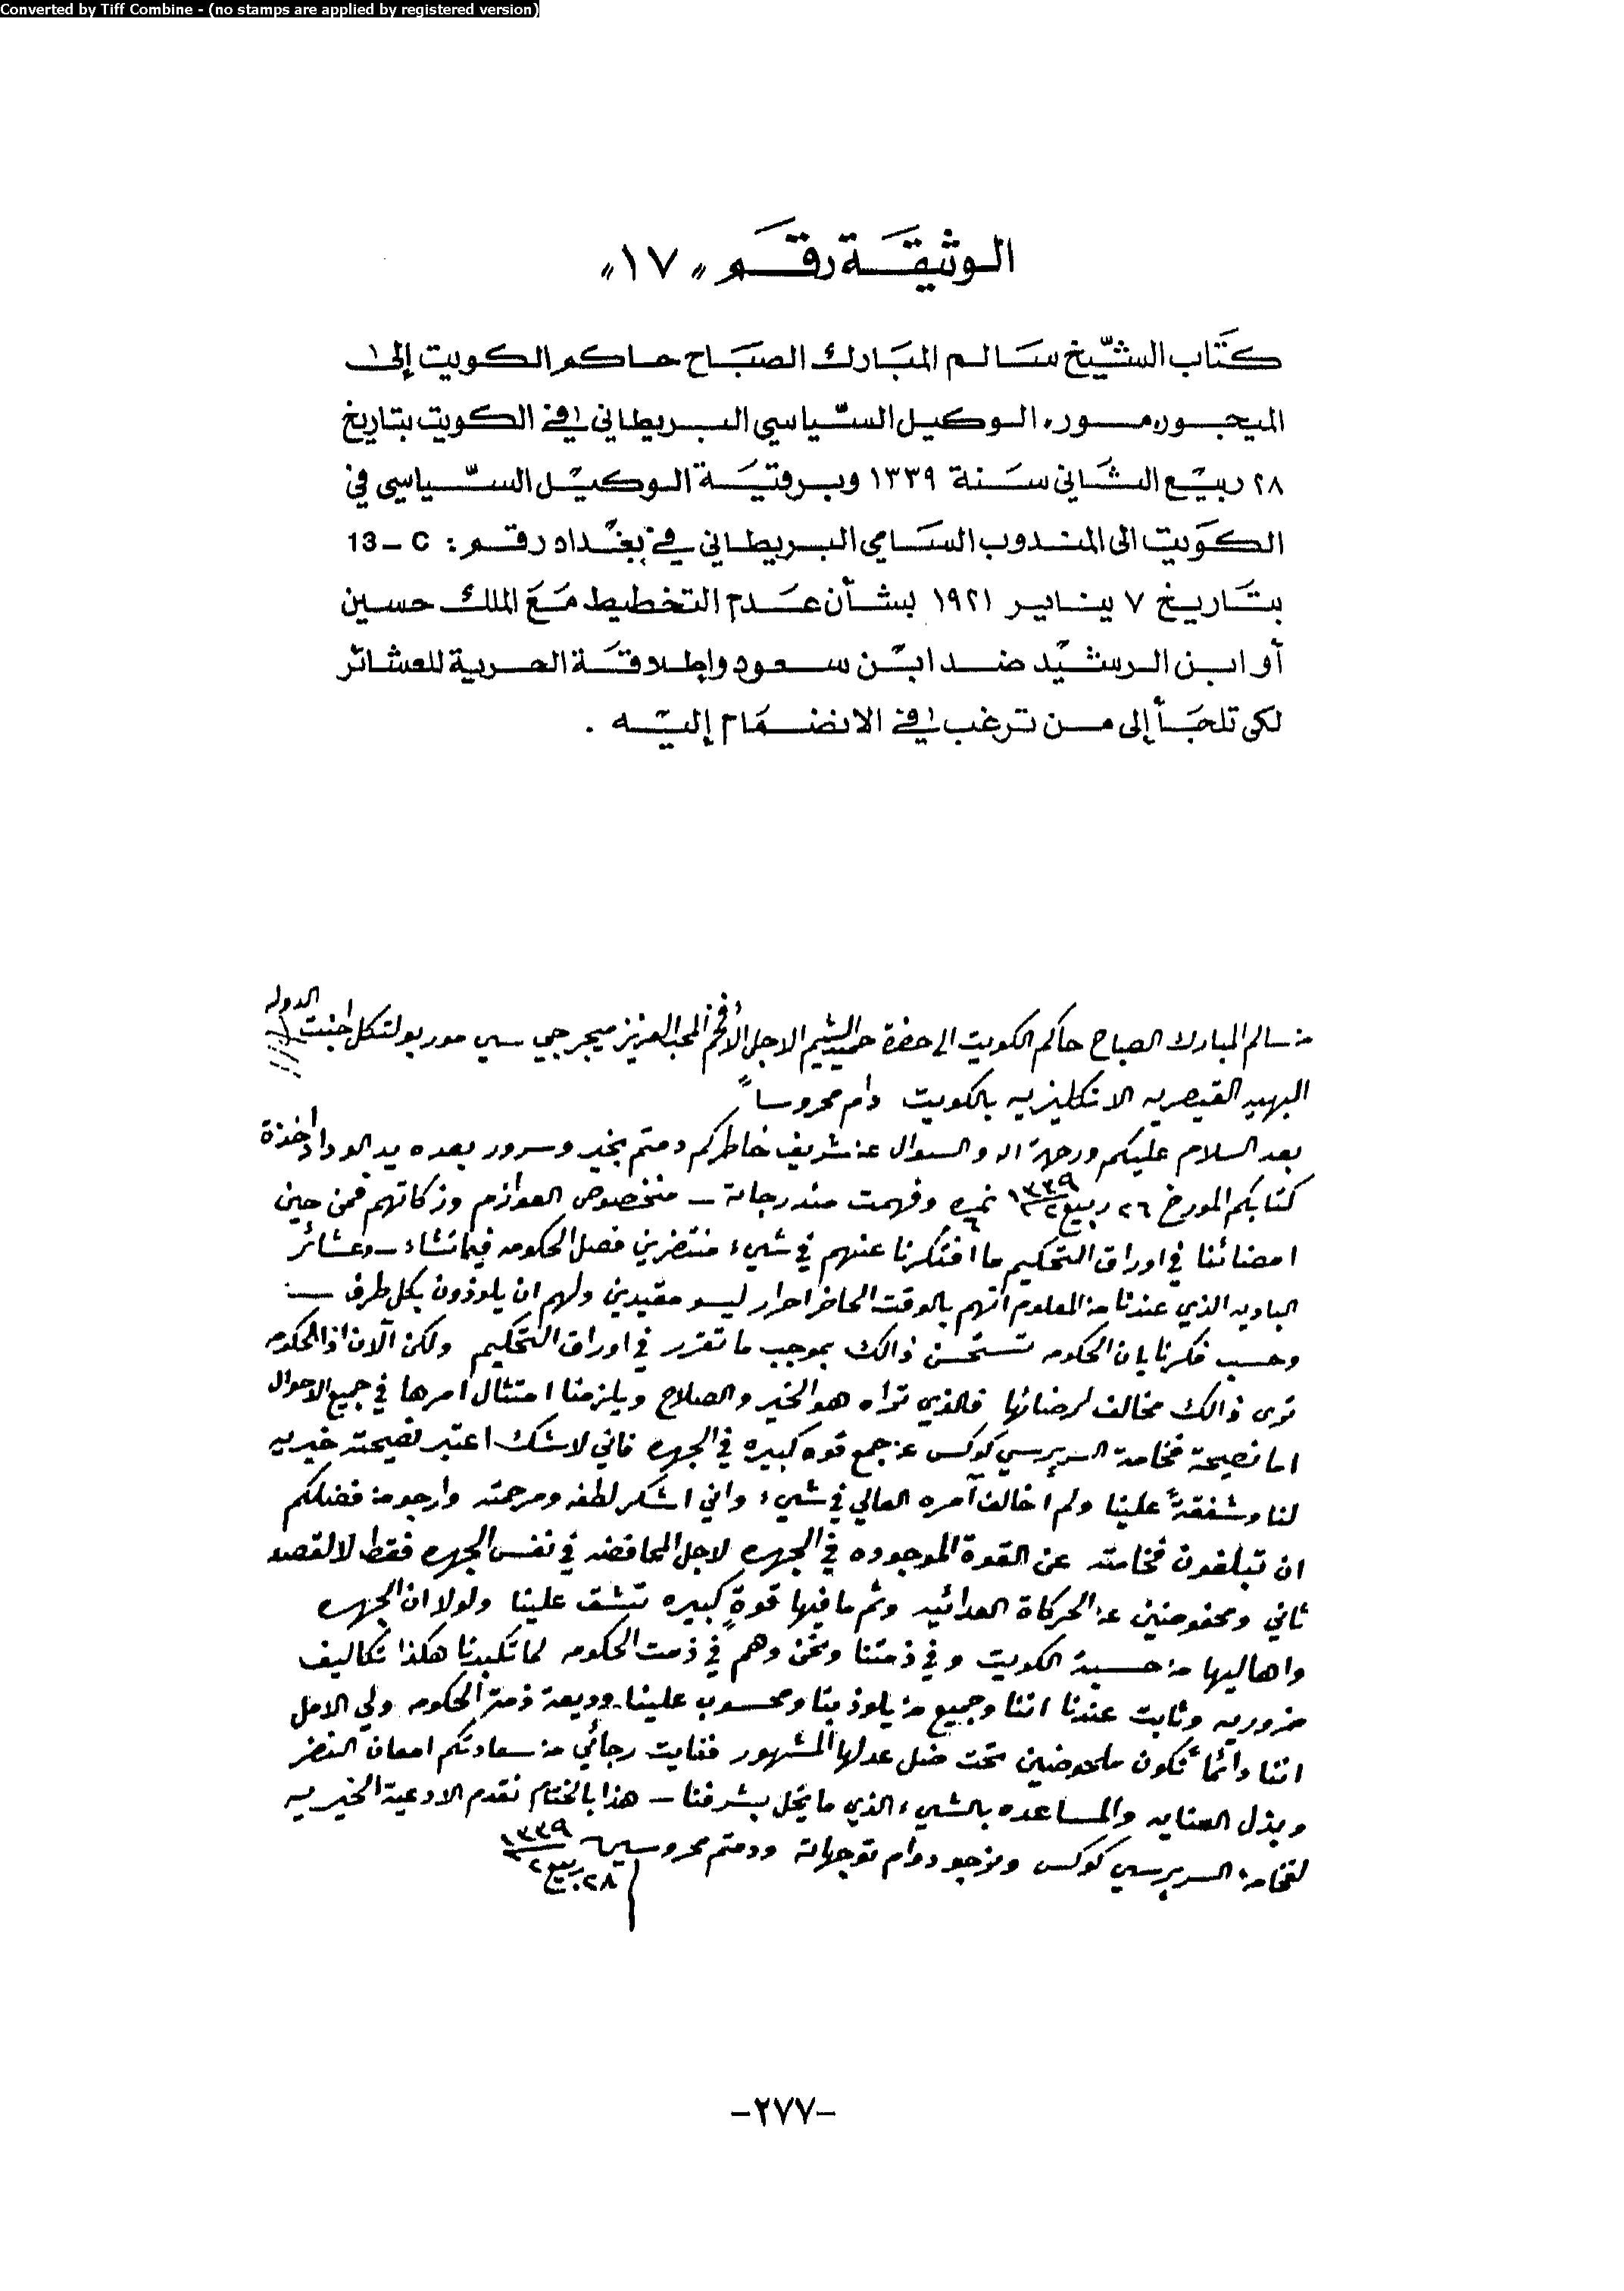 Converted by Tiff Combine - (no stamps are applied by registered version)
الوثيقة رقم "١٧"
كتاب الشيخ سالم المبارك الصباح حاكم الكويت إلى
الميجور مور، الوكيل السياسي البريطاني في الكويت بتاريخ
٢٨ ربيع الثاني سنة ١٣٣٩ وبرقية الوكيل السياسي في
الكويت الى المندوب السامي البريطاني في بغداد رقم: 13 – C
بتاريخ ٧ يناير ١٩٢١ بشأن عدم التخطيط مع الملك حسين
أو ابن الرشيد ضد ابن سعود وإطلاقة الحرية للعشائر
لكي تلجأ إلى من ترغب في الانضمام إليه .
من سالم المبارك الصباح حاكم الكويت الى حضرة حميد الشيم الاجل الأفخم المحب العزيز ميجر جي سي مور بولتكل اجنت الدولة
البهيه القيصريه الانكليزيه بالكويت دام محروساً
بعد السلام عليكم ورحمة الله والسوال عن شريف خاطركم دمتم بخير وسرور بعده بيد الوداد اخذة
كتابكم المورخ ٢٦ ربيع٢ ١٣٣٩ نمره ٦ وفهمت مندرجاته – منخصوص العوازم وزكاتهم فمن حين
امضائنا في اوراق التحكيم ما افتكرنا عنهم في شيء منتضرين فصل الحكومه فيما تشاء – وعشائر
الباديه الذي عندنا من المعلوم انهم بالوقت الحاضر احرار ليسو مقيدين ولهم ان يلوذون بكل طرف
وحسب فكرنا بان الحكومه تستحسن ذالك بموجب ما تقرر في اوراق التحكيم ولكن الآن اذا الحكومه
ترى ذالك مخالف لرضائها فالذي تراه هو الخير والصلاح ويلزمنا امتثال امرها في جميع الاحوال
اما نصيحة فخامة السر برسي كوكس عن جمع قوه كبيره في الجهره فاني لاشك اعتبر نصيحته خيريه
لنا وشفقةً علينا ولم اخالف آمره العالي في شيء واني اشكر لطفه ومرحمته وارجو من فضلكم
ان تبلغون فخامته عن القوة الموجوده في الجهره لاجل المحافضه في نفس الجهره فقط لا لقصد
ثاني ومحفوضين عن الحركاة العدائيه وثم ما فيها قوةٍ كبيره تشق علينا ولولا ان الجهره
واهاليها من حسبة الكويت وفي ذمتنا ونحن وهم في ذمت الحكومه لما تكبدنا هكذا تكاليف
ضروريه وثابت عندنا اننا وجميع من يلوذ بنا ومحسوب علينا وديعة ذمة الحكومه ولي الامل
اننا دائماً نكون ملحوضين تحت ضل عدلها المشهور فغايت رجائي من سعادتكم امعان النضر
وبذل العنايه والمساعده بالشيء الذي ما يخل بشرفنا – هذا بالختام نقدم الادعية الخيريه
لفخامة السر برسي كوكس ونرجو دوام توجهاته ودمتم محروسين ٢٨ ربيع٢ ١٣٣٩
–٢٧٧–